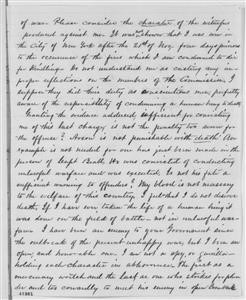 of war. Please consider the character of the witnesses
produced against me. It was shown that I was in
the City of New York after the 25th of Nov. four days previous
to the occurrence of the fires which I am condemned to die
for Kindling. Do not understand me as casting any im
proper reflections on the members of the Commission, I
suppose they did their duty as conscientious men perfectly
aware of the responsibility of condemning a human being to death
Granting the evidence adduced sufficient for convicting
me of this last charge is not the penalty too severe for
the offence? Arson is not punishable with death. An
example is not needed for one has just been made in the
person of Capt Beall. He was convicted of conducting
unlawful warfare and was executed. Is not his fate a
sufficient warning to offenders? My blood is not necessary
to the welfare of this country. I feel that I do not deserve
death. If I have ever taken the life of a human being it
was done on the field of battle - not in unlawful war-
fare. I have been an enemy to your Government since
the outbreak of the present unhappy war but I have been an
open and honorable one. I am not a spy, or guerilla
holding such character in abhorrence. The first as a
mercenary wretch and the last as one who strikes for plun
der and too cowardly to meet his enemy in open
41981